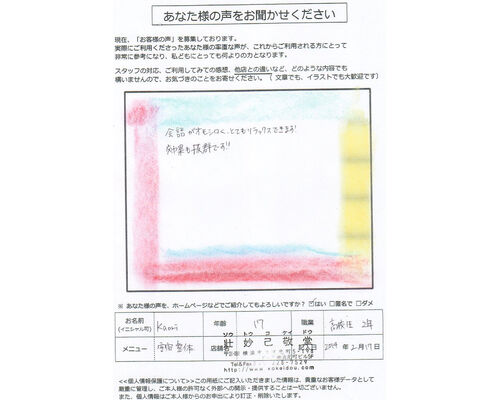 あなた様の声をお聞かせください
現在、「お客様の声」を募集しております。
実際にご利用くださったあなた様の率直な声が、これからご利用される方にとって
非常に参考になり、私どもにとっても何よりの力となります。
スタッフの対応、ご利用してみての感想、他店との違いなど、どのような内容でも
構いませんので、お気づきのことをお寄せください。(文章でも、イラストでも大歓迎です)
会話がオモシロく、とてもリラックスできます!
効果も抜群です!!
※ あなた様の声を、ホームページなどでご紹介してもよろしいですか? ☑はい □匿名で □ダメ
お名前 (イニシャル可) Kaori 年齢 17 職業 高校生 2年
ソウ トク コ ケイ ドウ
メニュー 宇宙整体 店舗名 壮妙己敬堂 記入日 2014年2月17日
http://www.sokeidou.com
<<個人情報保護について>>この用紙にご記入いただきました情報は、貴重なお客様データとして
厳重に管理し、ご本人様の許可なく外部への開示・提供することは一切ございません。
また、個人情報はご本人様からのお申出により訂正・削除いたします。